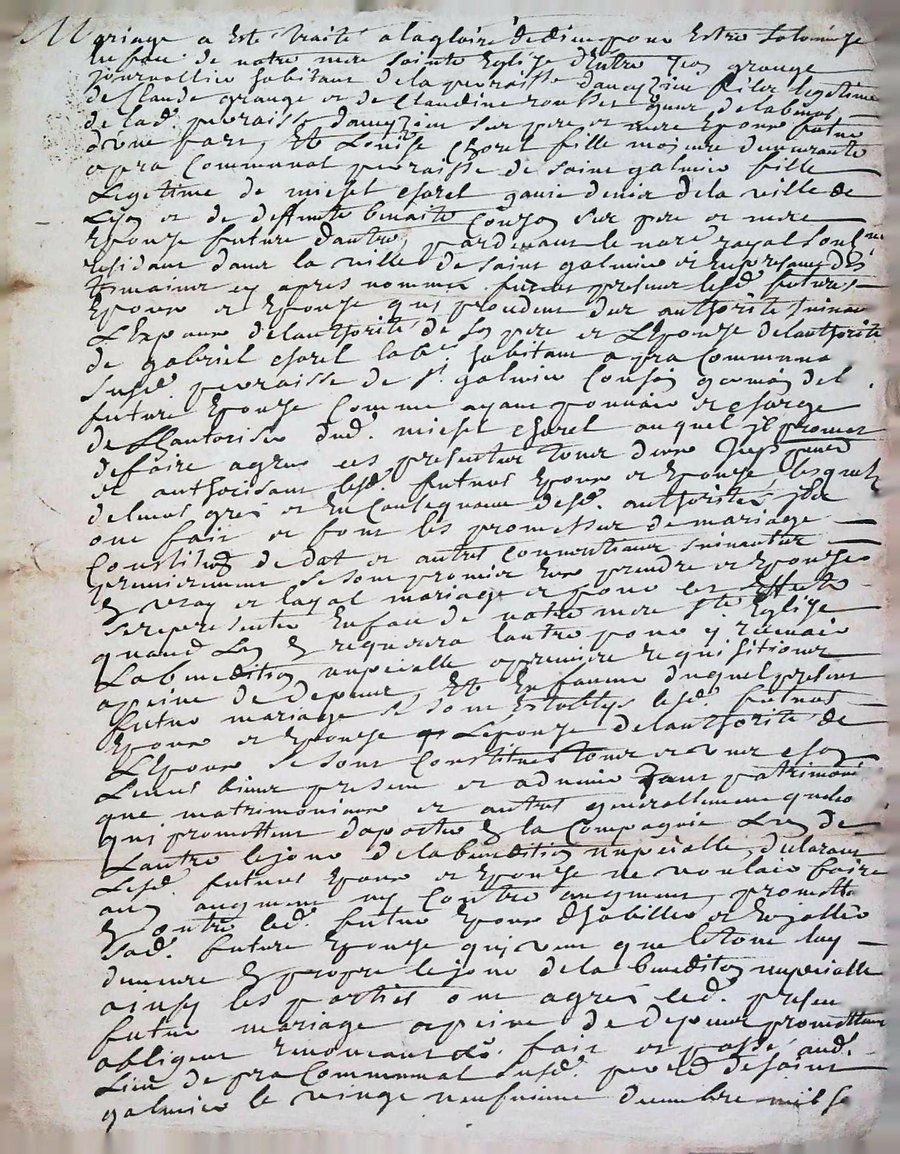 Mariage a esté traité a la gloire de dieu pour estre solemnizé
en face de notre mere sainte Eglise Entre Jean grange
journallier habitant de la parroisse fils legitime
de Claude grange et de Claudine de labeur
de lad. parroisse sur pere et mere Epoux futur
d'une part, Et Louise Chorel fille majeure demeurante
a pra Communal parroisse de saint galmier fille
Legitime de michel Chorel de la ville de
Lyon et de deffunte benoite sur pere et mere
Epouze future d'autre, pardevant le no.re royal soub.né
residant dans la ville de saint galmier et en presence des
temoins cy apres nommes furent presens lesd. futurs
Epoux et Epouze qui procedent des authorités suivantes
L'Epoux de l'authorité de son pere et L'Epouze de l'authorité
de gabriel Chorel lab.r habitant a pra Communal
susd. parroisse de s.t galmier Cousin germain de la
future Epouze Comme ayant pouvoir et charge
de L'autoriser dud. michel Chorel auquel il promet
de faire agreer ces presentes tous deux
et authorisant lesd. futurs Epoux et Epouze, lesquels
de leurs gres et En Consequence desd. authorités
ont fait et font les promesses de mariage
Constitution de dot et autres Conventions suivantes
premierement se sont promis prendre et Epouzer
En vray et loyal mariage et pour cet Effet
se representer En face de notre mere s.te Eglise
quand L'un En requerera l'autre pour y recevoir
La benediction nuptialle a premiere requisition
a peine de depens, Et En faveur duquel present
futur mariage se sont lesd. futurs
Epoux et Epouze L'epouze de l'authorité de
L'Epoux se sont Constitués tous et un chacun
Leurs biens presens et advenir tant patrimoni
que matrimoniaux et autres generallement quelco
qu'ils promettent d'aporter En la Compagnie L'un de
L'autre le jour de la benediction nuptialle, declarant
Lesd. futurs Epoux et Epouze ne vouloir faire
aucun augment ny Contre augment, promettant
En outre led. futur Epoux d'habiller et Enjoaller
Lad. future Epouze qui veut que le tout luy
demeure En propre le jour de la benediction nuptialle
ainsy les parties ont agreé led. present
futur mariage a peine de depens promettant
obligent renonceant fait et passé aud.
Lieu de pra Communal susd. parr.e de saint
galmier le vingt neufvieme decembre mil se